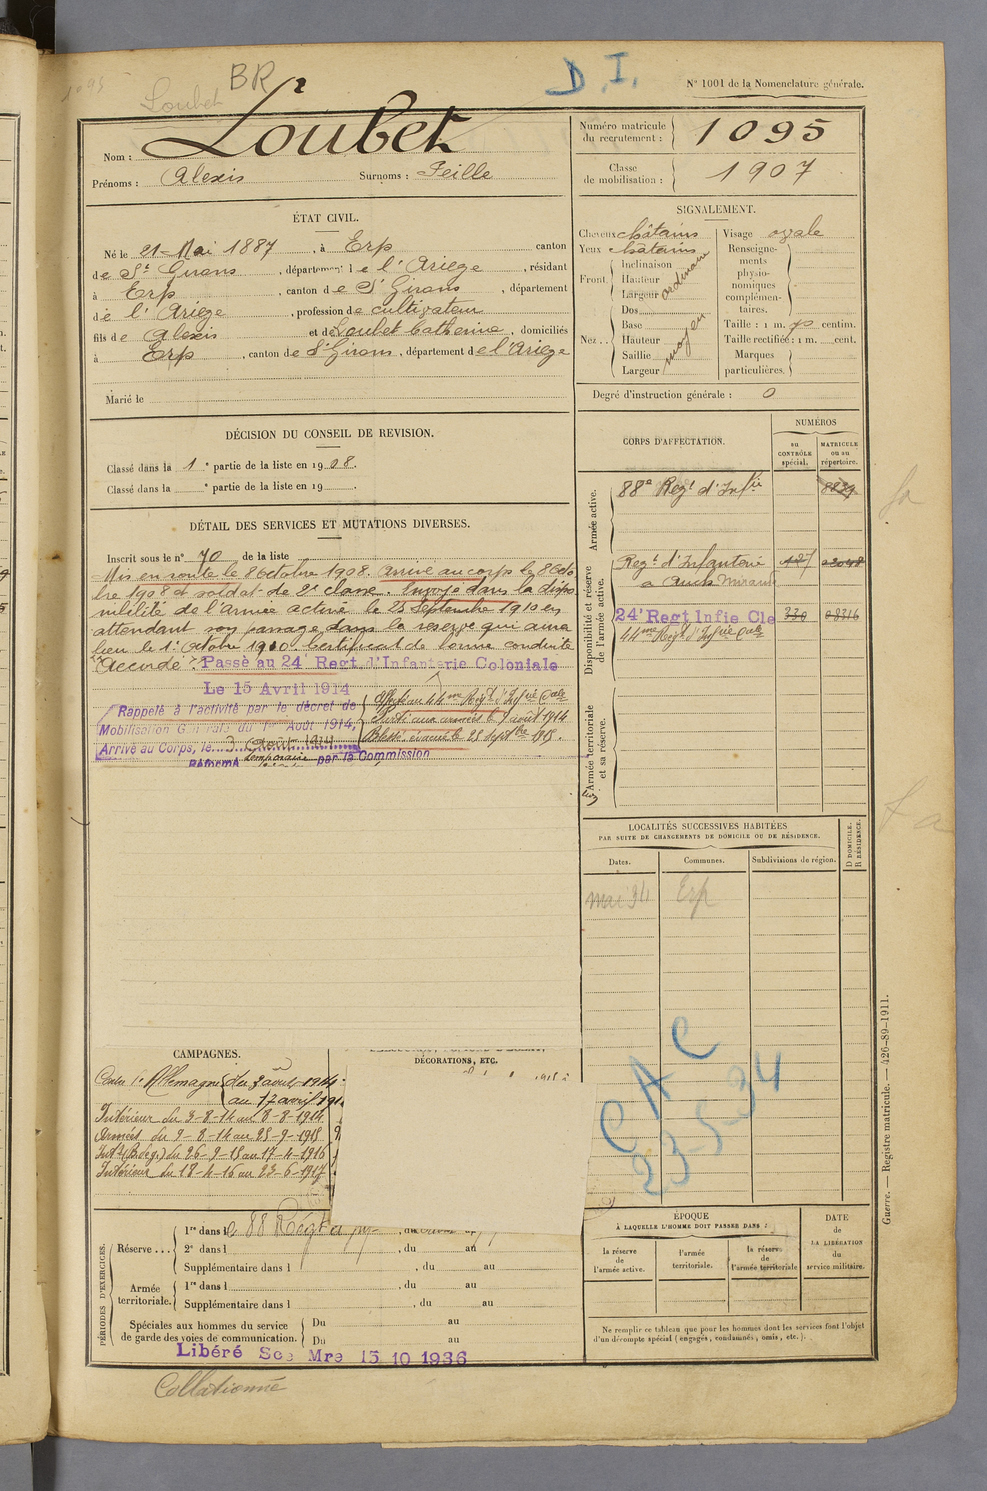 1095
Loubet
BR
D.I.
N° 1001 de la Nomenclature générale.
Nom : Loubet
Prénoms : Alexis Surnoms : Feille
Numéro matricule du recrutement : 1095
Classe de mobilisation : 1907
ÉTAT CIVIL.
Né le 21 Mai 1887, à Erp canton
de St Girons, département de l'Ariège, résidant
à Erp, canton de St Girons, département
de l'Ariège, profession de cultivateur
fils de Alexis et de Loubet Catherine, domiciliés
à Erp, canton de St Girons, département de l'Ariège
Marié le
SIGNALEMENT.
Cheveux châtains
Yeux châtains
Front. Inclinaison Hauteur Largeur ordinaire
Nez.. Dos Base Hauteur Saillie Largeur moyen
Visage ovale
Renseignements physionomiques complémentaires.
Taille : 1 m. 70 centim.
Taille rectifiée : 1 m. cent.
Marques particulières.
Degré d'instruction générale : 0
DÉCISION DU CONSEIL DE REVISION.
Classé dans la 1e partie de la liste en 1908.
Classé dans la e partie de la liste en 19 .
DÉTAIL DES SERVICES ET MUTATIONS DIVERSES.
Inscrit sous le n° 70 de la liste
Mis en route le 8 Octobre 1908. Arrivé au corps le 8 Octo
bre 1908 et soldat de 2e classe. Envoyé dans la dispo
nibilité de l'armée active le 25 Septembre 1910 en
attendant son passage dans la réserve qui aura
lieu le 1er Octobre 1910. Certificat de bonne conduite
"Accordé". Passé au 24e Regt d'Infanterie Coloniale
Le 15 Avril 1914
Rappelé à l'activité par le décret de
Mobilisation Générale du 1er Août 1914,
Arrivé au Corps, le 3 Août 1914
Affecté au 44me Régt d'Infie Cale
Parti aux armées le 9 août 1914
Blessé évacué le 25 septbre 1915.
Réformé temporaire par la Commission
CORPS D'AFFECTATION.
NUMÉROS
au CONTRÔLE spécial.
MATRICULE ou au répertoire.
Armée active.
88e Regt d'Infie 8829
Disponibilité et réserve de l'armée active.
Regt d'Infanterie 127
à Auch Mirande
24e Regt Infie Cle 330 08316
44me Régt d'Infie Cale
Armée territoriale et sa réserve.
LOCALITÉS SUCCESSIVES HABITÉES
PAR SUITE DE CHANGEMENTS DE DOMICILE OU DE RÉSIDENCE.
Dates. Communes. Subdivisions de région. D DOMICILE. R RÉSIDENCE.
mai 34 Erp
CAC
23-5-34
CAMPAGNES.
Contre l'Allemagne du 3 août 1914
au 17 avril 191
Intérieur du 3-8-14 au 8-8-1914
Armées du 9-8-14 au 25-9-1915
Int. (Bdegr) du 26-9-15 au 17-4-1916
Intérieur du 18-4-16 au 23-6-1917
DÉCORATIONS, ETC.
PÉRIODES D'EXERCICES.
Réserve... 1re dans le 88 Régt
2e dans l , du au
Supplémentaire dans l , du au
Armée territoriale. 1re dans l , du au
Supplémentaire dans l , du au
Spéciales aux hommes du service
de garde des voies de communication. Du au
Du au
Libéré Sce Mre 15 10 1936
Collationné
ÉPOQUE
À LAQUELLE L'HOMME DOIT PASSER DANS :
la réserve de l'armée active.
l'armée territoriale.
la réserve de l'armée territoriale
DATE de LA LIBÉRATION du service militaire.
Ne remplir ce tableau que pour les hommes dont les services font l'objet
d'un décompte spécial (engagés, condamnés, omis, etc.).
Guerre. — Registre matricule. — 426-89-1911.